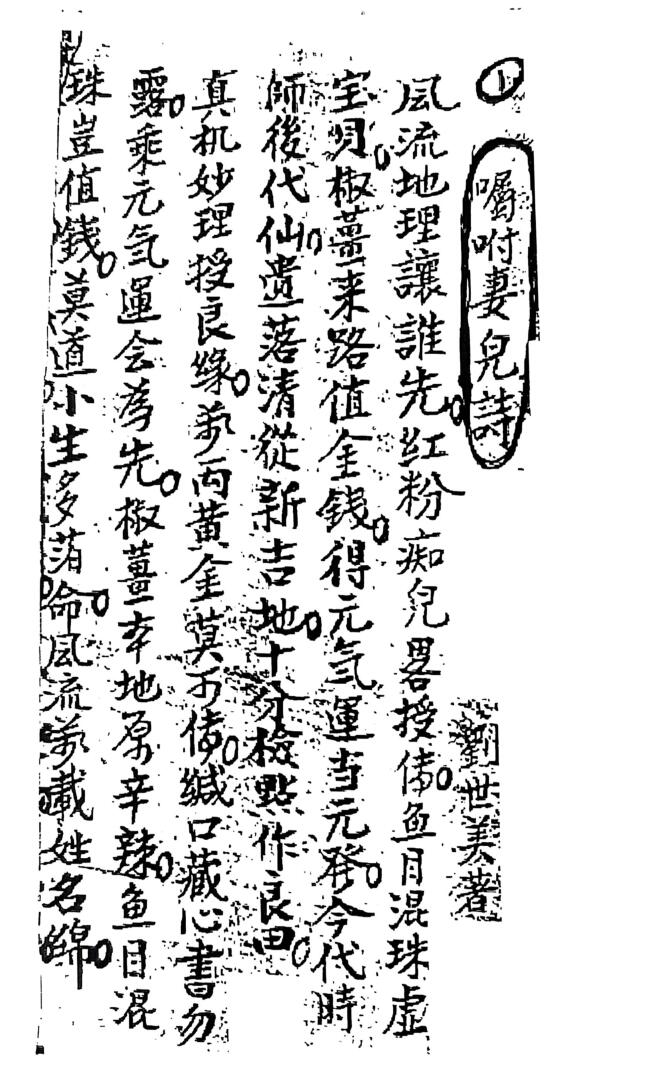 1
囑咐妻兒詩
劉世美著
風流地理讓誰先。红粉痴兒畧授傳。鱼目混珠虚
宝貝。椒薑来路值金錢。得元气運当元發。今代時
師後代仙。遗落清從新吉地。十分檢點作良田。
真机妙理授良缘。萬両黄金莫可傳。缄口藏心書勿
露。乘元气運会為先。椒薑本地原辛辣。鱼目混
珠豈值錢。莫道小生多落命。風流萬載姓名綿。